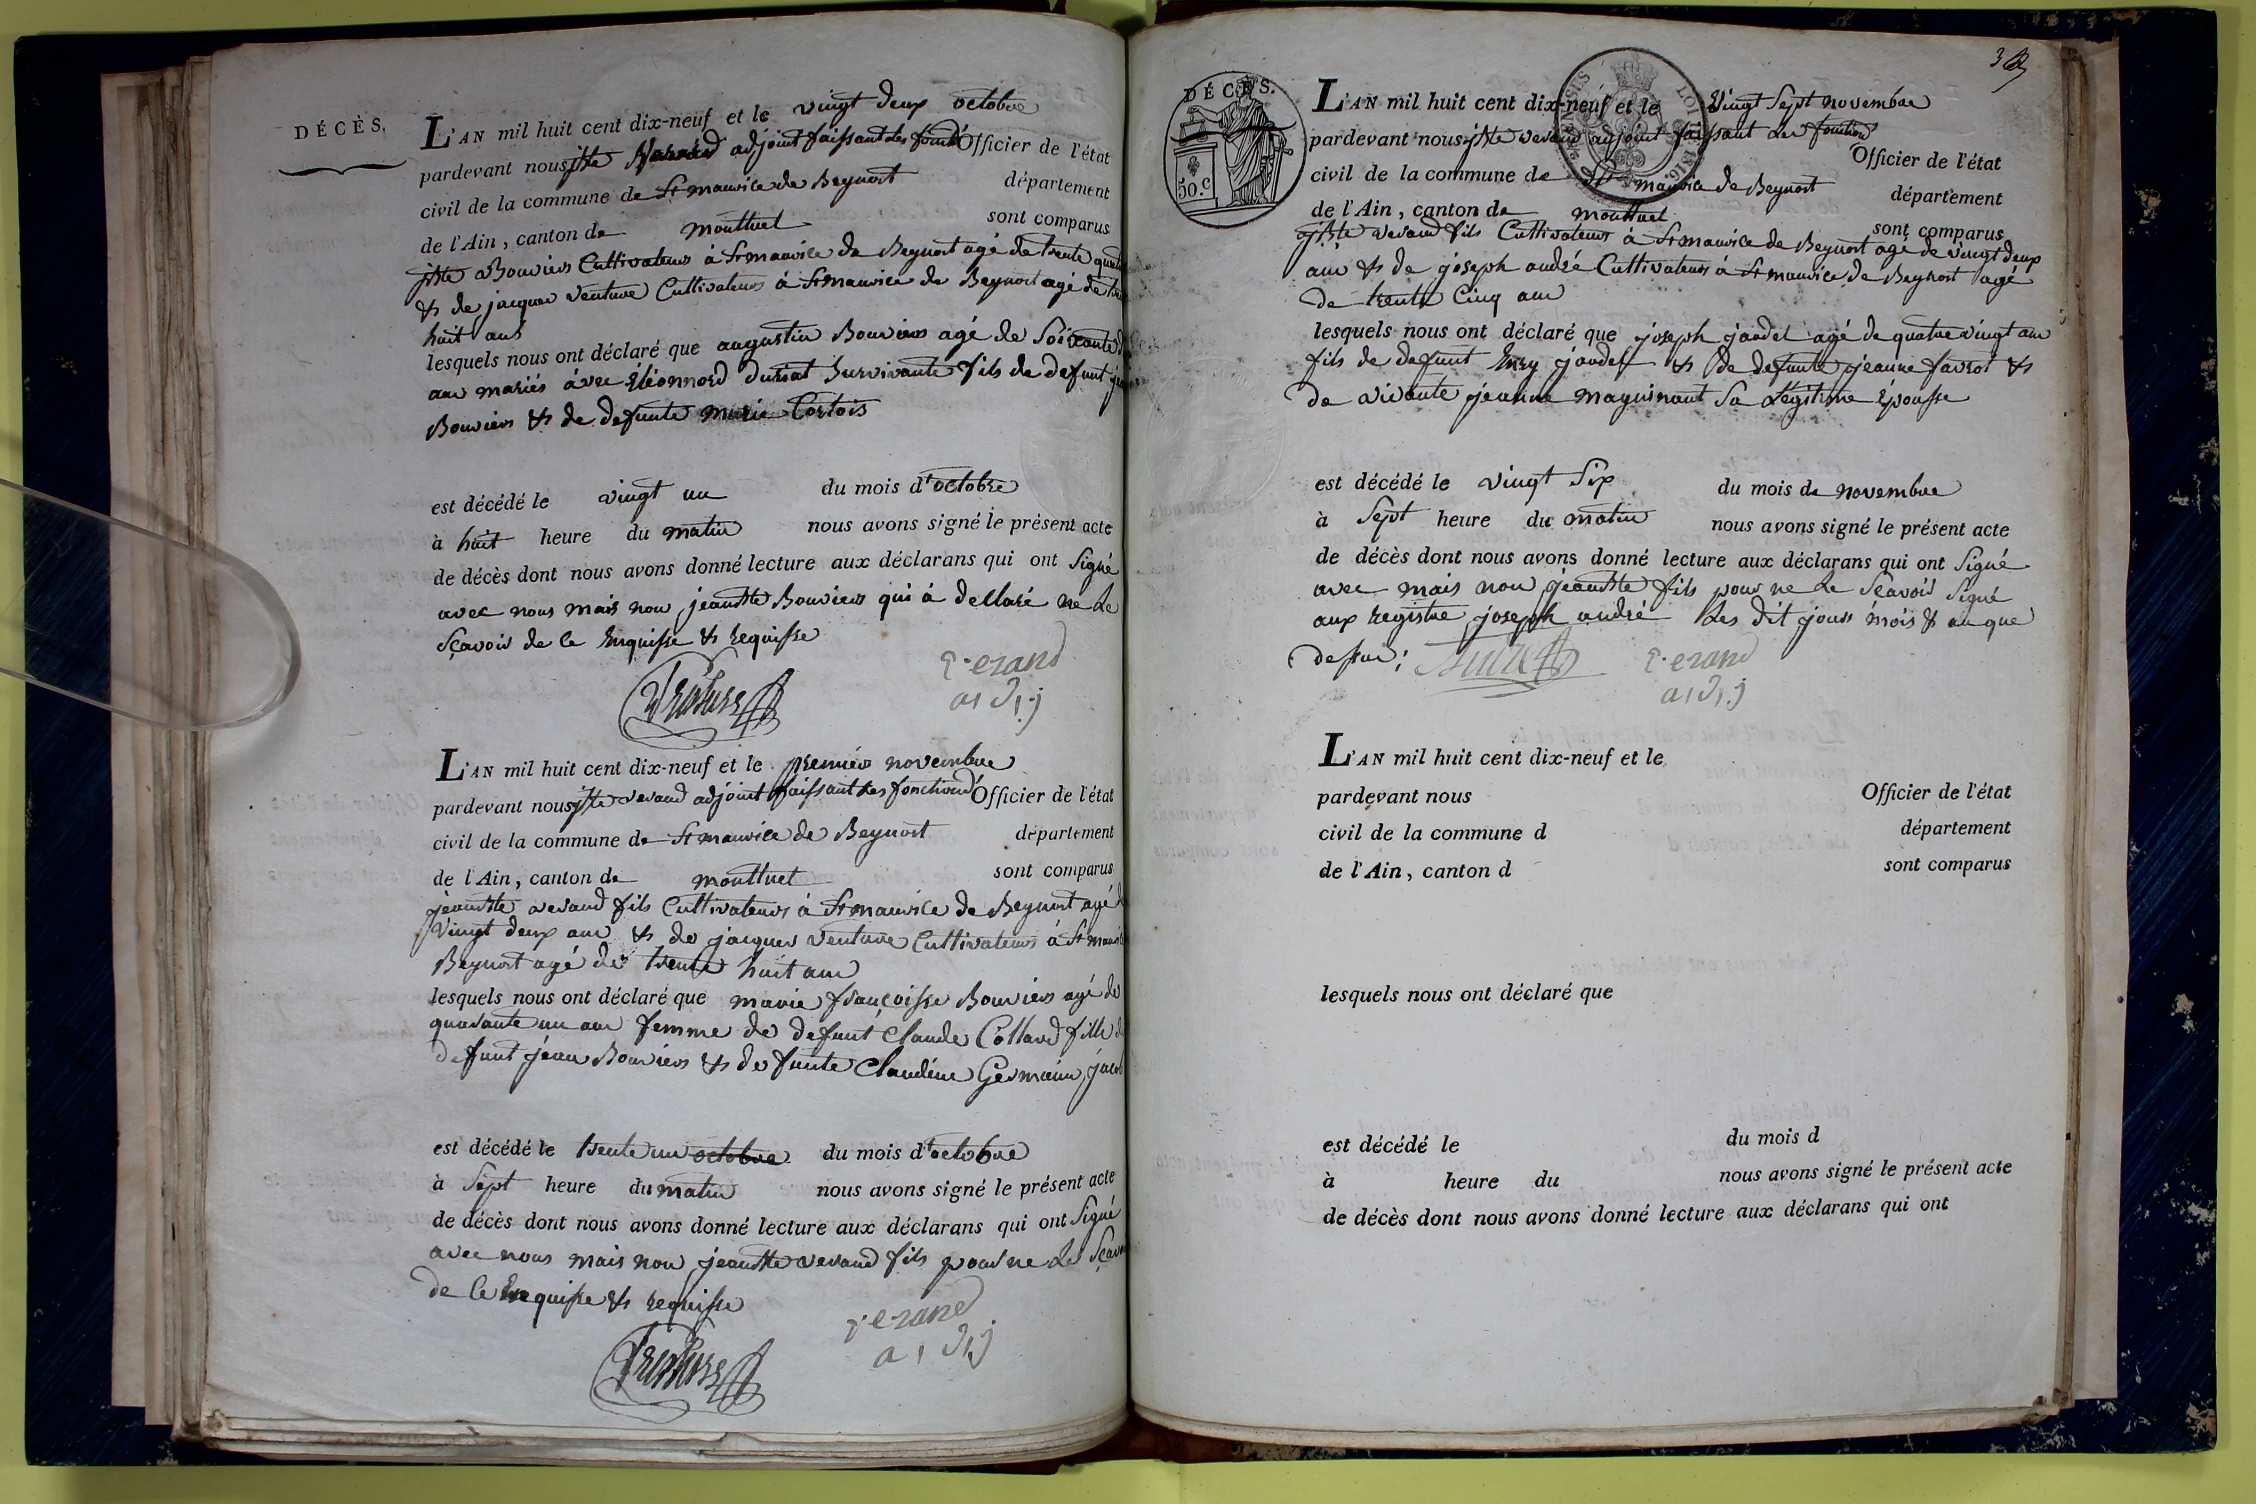 DÉCÈS.
L'AN mil huit cent dix-neuf et le vingt deux octobre
pardevant nous jBte Verand adjoint faissant les fonct Officier de l'état
civil de la commune de St maurice de Beynost département
de l'Ain, canton de montluel sont comparus
jBte Bouvier Cultivateur à St maurice de Beynost agé de trente quatre
& de jacques venture Cultivateur à St maurice de Beynost agé de
huit ans
lesquels nous ont déclaré que augustin Bouvier agé de Soixante
ans mariés avec Éléonnord durvat Survivante fils de defunt
Bouvier & de defunte marie Cortois
est décédé le vingt un du mois d'octobre
à huit heure du matin nous avons signé le présent acte
de décès dont nous avons donné lecture aux déclarans qui ont Signé
avec nous mais non jeanBte Bouvier qui à dellaré ne le
sçavoir de ce Enquisse & requisse
verand
adj
L'AN mil huit cent dix-neuf et le premier novembre
pardevant nous jBte verand adjoint faissant les fonctions Officier de l'état
civil de la commune de St maurice de Beynost département
de l'Ain, canton de montluel sont comparus
jeanBte verand fils Cultivateur à St maurice de Beynost agé
vingt deux ans & de jacques venture Cultivateur à St maurice
Beynost agé de trente huit ans
lesquels nous ont déclaré que marie françoisse Bouvier agé de
quarante un ans femme de defunt Claude Collard fille de
defunt jean Bouvier & defunte Claudine Germain
est décédé le trente un octobre du mois d'octobre
à Sept heure du matin nous avons signé le présent acte
de décès dont nous avons donné lecture aux déclarans qui ont Signé
avec nous mais non jeanBte verand fils pour ne le
de ce Enquisse & requisse
verand
adj
3
DÉCÈS.
50.C
L'AN mil huit cent dix-neuf et le Vingt Sept novembre
pardevant nous jBte verand adjoint faissant les fonction Officier de l'état
civil de la commune de St maurice de Beynost département
de l'Ain, canton de montluel sont comparus
jBte verand fils Cultivateur à St maurice de Beynost agé de vingt deux
ans & de joseph andré Cultivateur à St maurice de Beynost agé
de trente Cinq ans
lesquels nous ont déclaré que joseph jandet agé de quatre vingt ans
fils de defunt Enry jandet & de defunte jeanne favrot &
de vivante jeanne maguinant Sa Légitime Épousse
est décédé le vingt Six du mois de novembre
à Sept heure du matin nous avons signé le présent acte
de décès dont nous avons donné lecture aux déclarans qui ont Signé
avec mais non jeanBte fils pour ne le Sçavoir Signé
aux registre joseph andré Les dit jour mois & an que
dessus;
verand
adj
L'AN mil huit cent dix-neuf et le
pardevant nous Officier de l'état
civil de la commune d département
de l'Ain, canton d sont comparus
lesquels nous ont déclaré que
est décédé le du mois d
à heure du nous avons signé le présent acte
de décès dont nous avons donné lecture aux déclarans qui ont